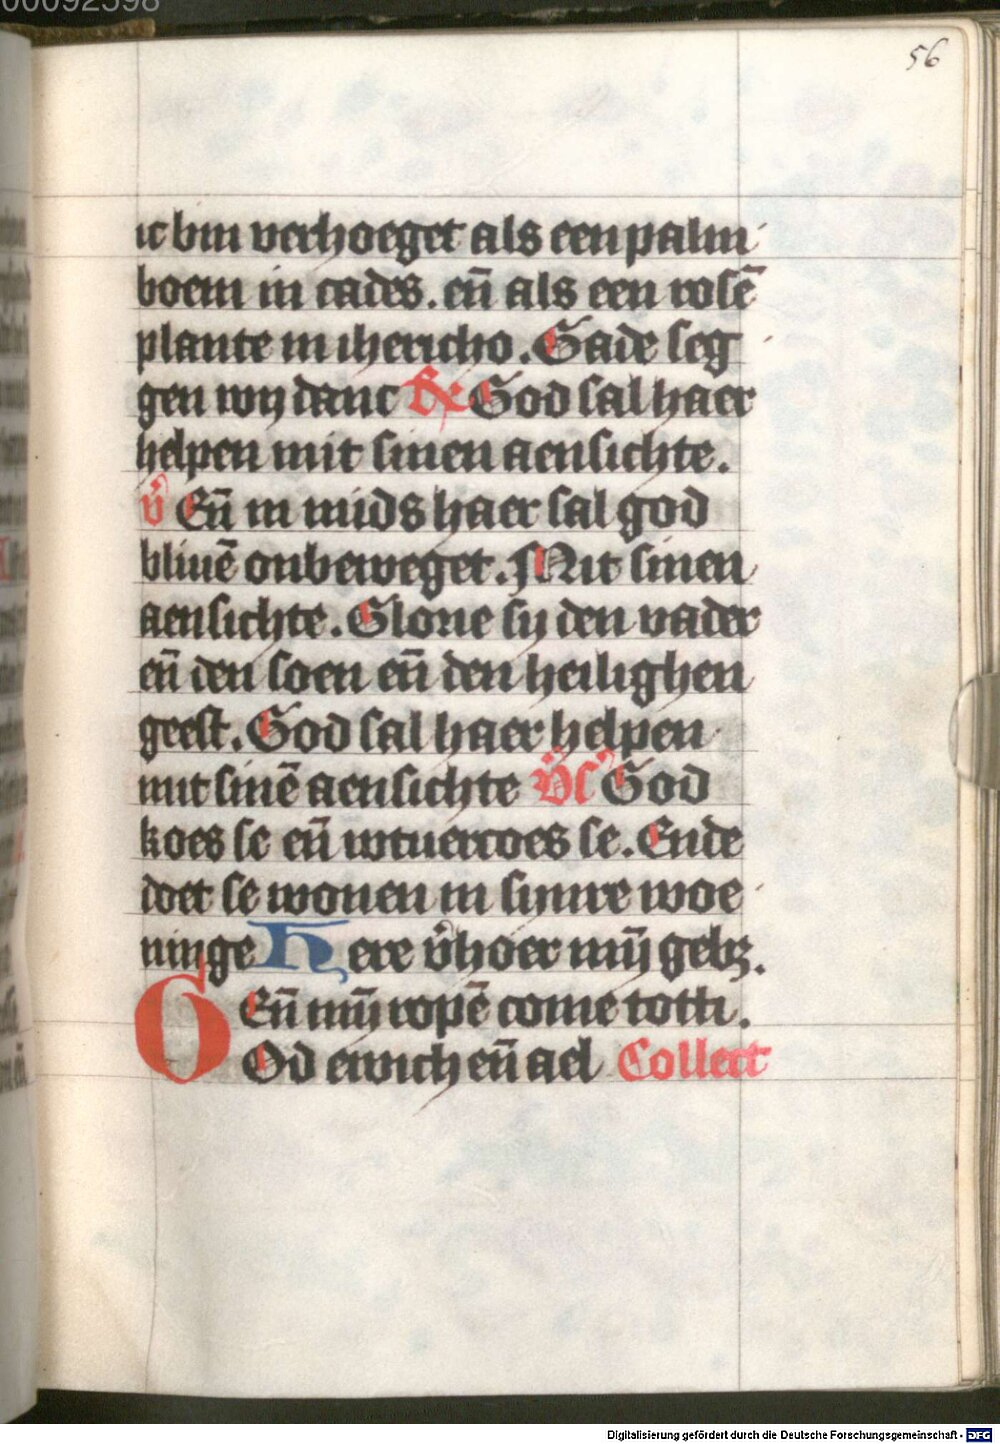 00092598
56
ic bin verhoeget als een palm
boem in cades. eñ als een rosē
plante in ihericho. Gade seg
gen wy danc R God sal haer
helpen mit sinen aensichte.
v̄ Eñ in mids haer sal god
bliuē onbeweget. Mit sinen
aensichte. Glorie sy den vader
eñ den soen eñ den heilighen
geest. God sal haer helpen
mit sinē aensichte Vs God
koes se eñ wtuercoes se. Ende
doet se wonen in synre woe
ninge Here v̄hoer mȳ gebʒ.
Eñ mȳ ropē come totti.
God ewich eñ ael Collect
Digitalisierung gefördert durch die Deutsche Forschungsgemeinschaft - DFG